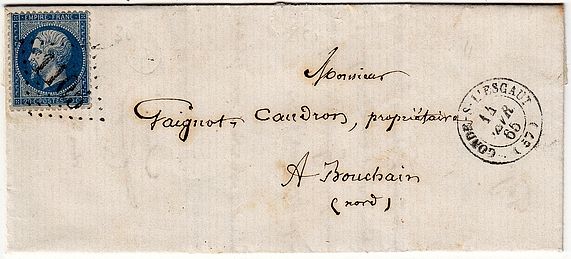 EMPIRE FRANC
Monsieur
Gaignot-Caudron, propriétaire
A Bouchain
(nord)
CONDÉ-S-L'ESCAUT
14
AVR
65
(57)